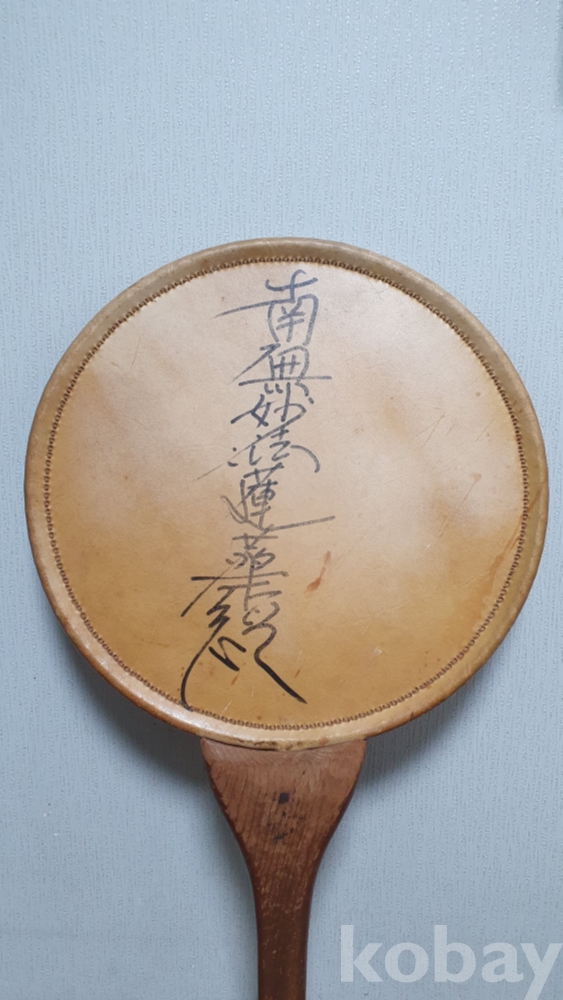 南無妙法蓮華経
kobay